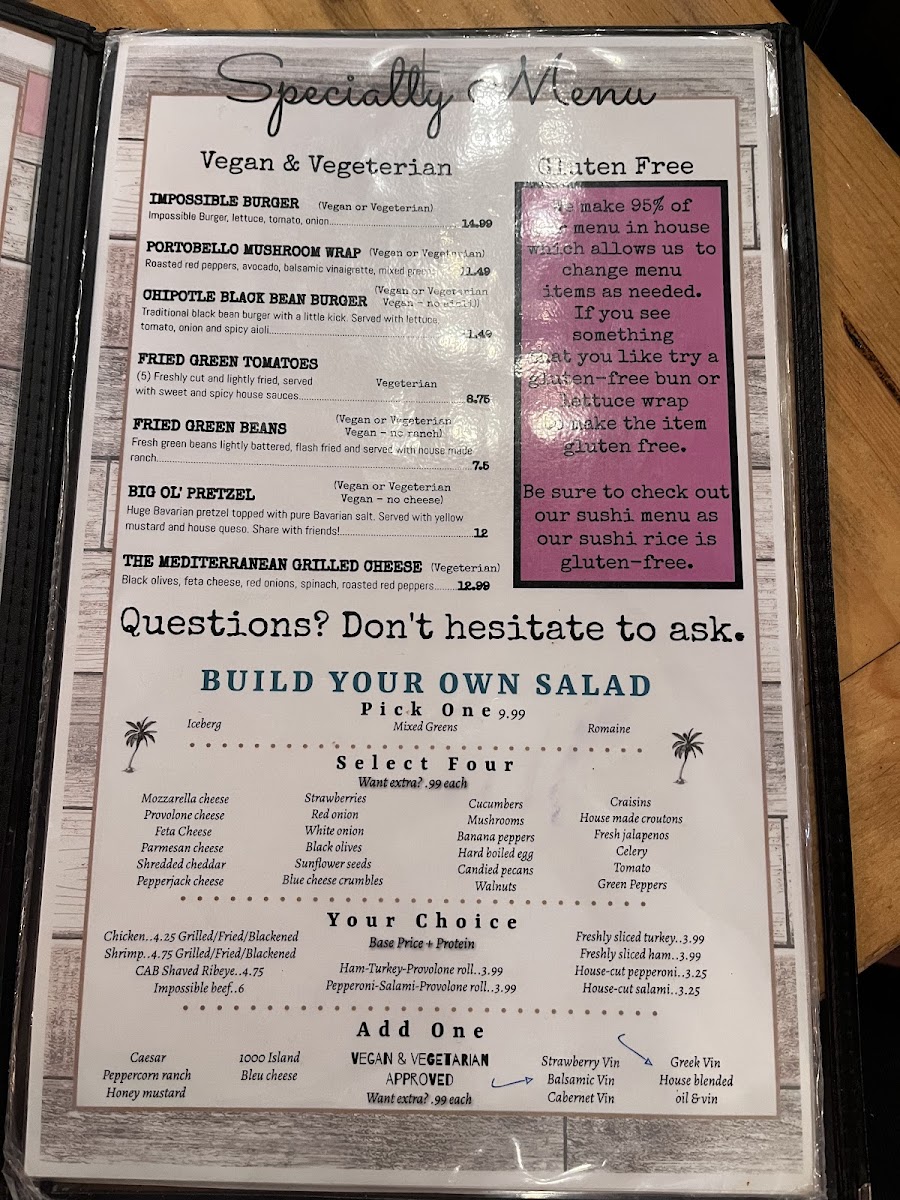 Specialty Menu
Vegan & Vegeterian
IMPOSSIBLE BURGER (Vegan or Vegetarian)
Impossible Burger, lettuce, tomato, onion 14.99
PORTOBELLO MUSHROOM WRAP (Vegan or Vegetarian)
Roasted red peppers, avocado, balsamic vinaigrette, mixed greens
CHIPOTLE BLACK BEAN BURGER (Vegan or Vegetarian
Vegan - no aioli)
Traditional black bean burger with a little kick. Served with lettuce,
tomato, onion and spicy aioli
FRIED GREEN TOMATOES
(5) Freshly cut and lightly fried, served Vegeterian
with sweet and spicy house sauces 8.75
FRIED GREEN BEANS (Vegan or Vegeterian
Vegan - no ranch)
Fresh green beans lightly battered, flash fried and served with house made
ranch 7.5
BIG OL' PRETZEL (Vegan or Vegeterian
Vegan - no cheese)
Huge Bavarian pretzel topped with pure Bavarian salt. Served with yellow
mustard and house queso. Share with friends! 12
THE MEDITERRANEAN GRILLED CHEESE (Vegeterian)
Black olives, feta cheese, red onions, spinach, roasted red peppers 12.99
Gluten Free
We make 95% of
our menu in house
which allows us to
change menu
items as needed.
If you see
something
that you like try a
gluten-free bun or
lettuce wrap
to make the item
gluten free.
Be sure to check out
our sushi menu as
our sushi rice is
gluten-free.
Questions? Don't hesitate to ask.
BUILD YOUR OWN SALAD
Pick One 9.99
Iceberg Mixed Greens Romaine
Select Four
Want extra? .99 each
Mozzarella cheese Strawberries Cucumbers Craisins
Provolone cheese Red onion Mushrooms House made croutons
Feta Cheese White onion Banana peppers Fresh jalapenos
Parmesan cheese Black olives Hard boiled egg Celery
Shredded cheddar Sunflower seeds Candied pecans Tomato
Pepperjack cheese Blue cheese crumbles Walnuts Green Peppers
Your Choice
Base Price + Protein
Chicken..4.25 Grilled/Fried/Blackened
Shrimp..4.75 Grilled/Fried/Blackened
CAB Shaved Ribeye..4.75
Impossible beef..6
Ham-Turkey-Provolone roll..3.99
Pepperoni-Salami-Provolone roll..3.99
Freshly sliced turkey..3.99
Freshly sliced ham..3.99
House-cut pepperoni..3.25
House-cut salami..3.25
Add One
Caesar
Peppercorn ranch
Honey mustard
1000 Island
Bleu cheese
VEGAN & VEGETARIAN
APPROVED
Want extra? .99 each
Strawberry Vin
Balsamic Vin
Cabernet Vin
Greek Vin
House blended
oil & vin